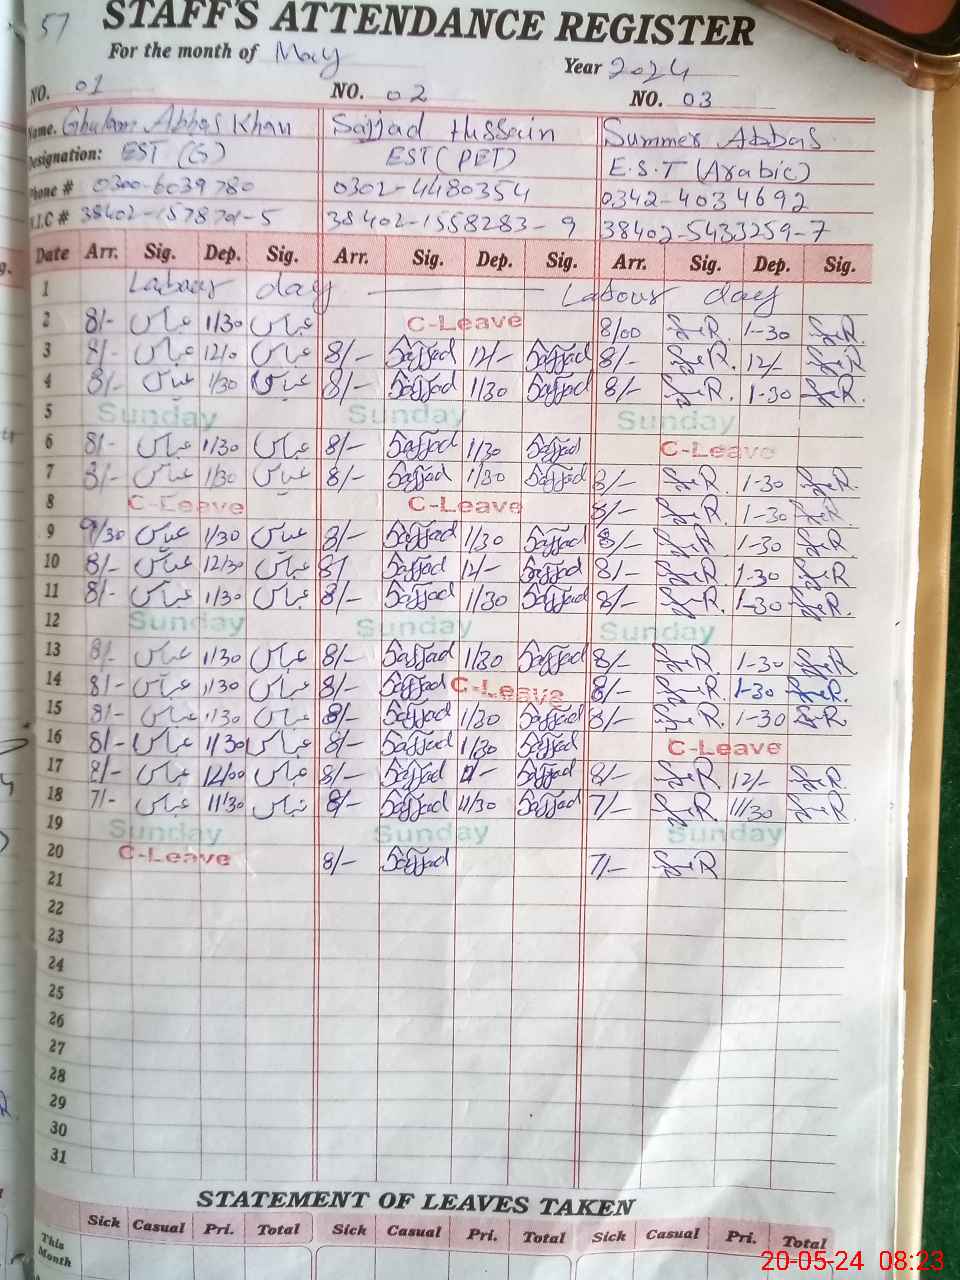 57
STAFF'S ATTENDANCE REGISTER
For the month of May
Year 2024
NO. 01 NO. 02 NO. 03
Name. Ghulam Abbas Khan Sajjad Hussain Summer Abbas
Designation: EST (G) EST (PET) E.S.T (Arabic)
Phone # 0300-6039780 0302-4480354 0342-4034692
N.I.C # 38402-1558283-9 38402-5433259-7
Date Arr. Sig. Dep. Sig. Arr. Sig. Dep. Sig. Arr. Sig. Dep. Sig.
1 Labour day Labour day
2 8/- عباس 1/30 عباس C-Leave 8/00 1-30
3 8/- عباس 12/0 عباس 8/- Sajjad 12/- Sajjad 8/- 12/-
4 8/- عباس 1/30 عباس 8/- Sajjad 1/30 Sajjad 8/- 1-30
5 Sunday Sunday Sunday
6 8/- عباس 1/30 عباس 8/- Sajjad 1/30 Sajjad C-Leave
7 8/- عباس 1/30 عباس 8/- Sajjad 1/30 Sajjad 8/- 1-30
8 C-Leave C-Leave 8/- 1-30
9 9/30 عباس 1/30 عباس 8/- Sajjad 1/30 Sajjad 8/- 1-30
10 8/- عباس 12/30 عباس Sajjad 12/- Sajjad 8/- 1-30
11 8/- عباس 1/30 عباس 8/- Sajjad 1/30 Sajjad 8/- 1-30
12 Sunday Sunday Sunday
13 8/- عباس 1/30 عباس 8/- Sajjad 1/30 Sajjad 8/- 1-30
14 8/- عباس 1/30 عباس 8/- Sajjad C-Leave 8/- 1-30
15 8/- عباس 1/30 عباس 8/- Sajjad 1/30 Sajjad 8/- 1-30
16 8/- عباس 1/30 عباس 8/- Sajjad 1/30 Sajjad C-Leave
17 8/- عباس 12/00 عباس 8/- Sajjad Sajjad 8/- 12/-
18 7/- عباس 11/30 عباس 8/- Sajjad 11/30 Sajjad 7/- 11/30
19 Sunday Sunday Sunday
20 C-Leave 8/- Sajjad 7/-
21
22
23
24
25
26
27
28
29
30
31
STATEMENT OF LEAVES TAKEN
Sick Casual Pri. Total Sick Casual Pri. Total Sick Casual Pri. Total
This Month
20-05-24 08:23